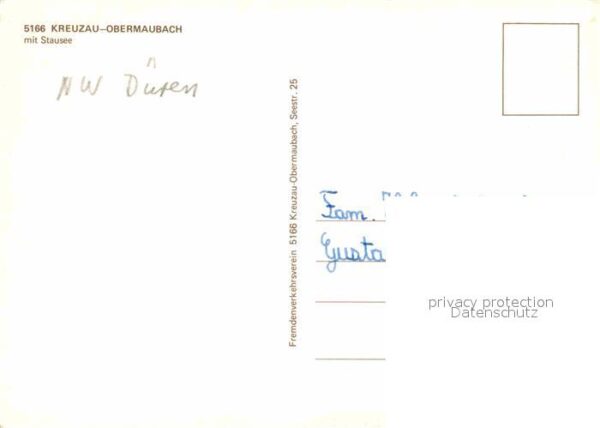 5166 KREUZAU-OBERMAUBACH
mit Stausee
NW Düren
Fremdenverkehrsverein 5166 Kreuzau-Obermaubach, Seestr. 25
Fam.
privacy protection
Datenschutz